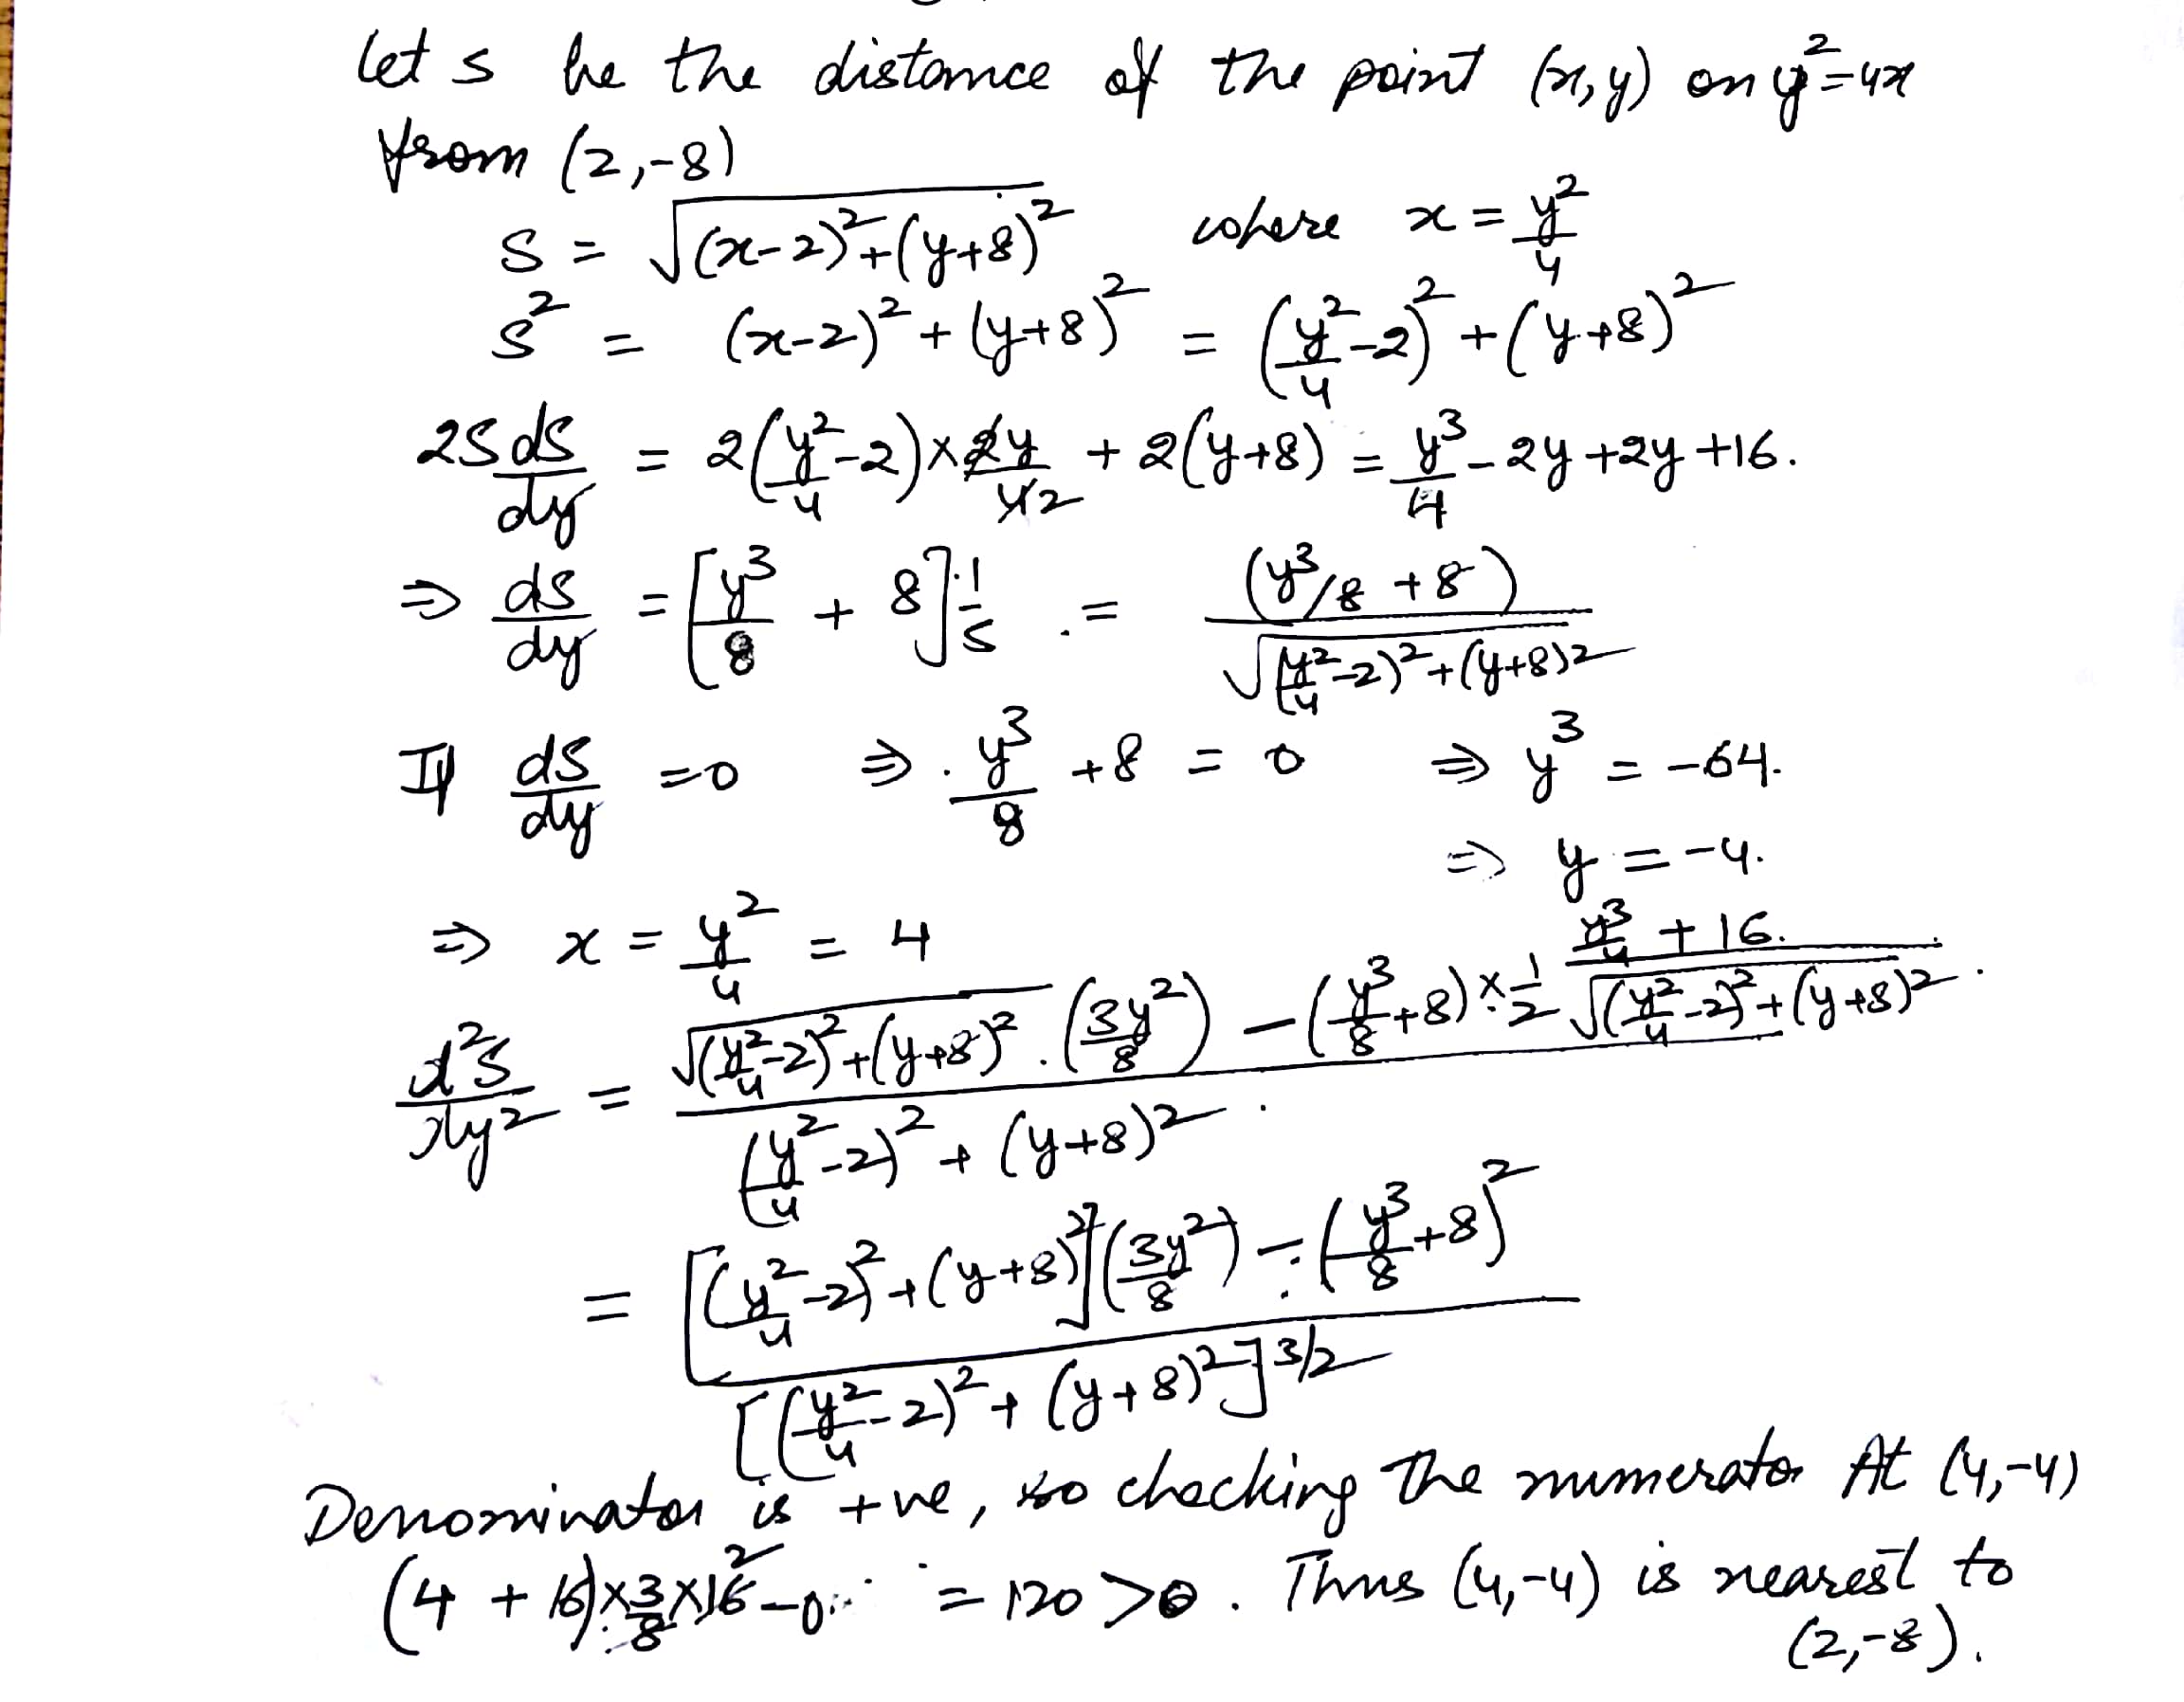 let s be the distance of the point (x,y) on y² = 4x
from (2,-8)
S = √((x-2)² + (y+8)²) where x = y²/4
S² = (x-2)² + (y+8)² = (y²/4 - 2)² + (y+8)²
2S dS/dy = 2(y²/4 - 2) × 2y/4 2 + 2(y+8) = y³/4 - 2y + 2y + 16.
⇒ dS/dy = [y³/8 + 8] · 1/S = (y³/8 + 8)/√((y²/4 - 2)² + (y+8)²)
If dS/dy = 0 ⇒ y³/8 + 8 = 0 ⇒ y³ = -64.
⇒ y = -4.
⇒ x = y²/4 = 4
d²S/dy² = [√((y²/4 - 2)² + (y+8)²) · (3y²/8) - (y³/8 + 8) × 1/2 (y³/4 + 16)/√((y²/4 - 2)² + (y+8)²)] / [(y²/4 - 2)² + (y+8)²].
= {[(y²/4 - 2)² + (y+8)²](3y²/8) - (y³/8 + 8)²} / [(y²/4 - 2)² + (y+8)²]^3/2
Denominator is +ve, so checking the numerator At (4,-4)
(4 + 16) × 3/8 × 16 2 - 0 = 120 > 0. Thus (4,-4) is nearest to
(2,-8).